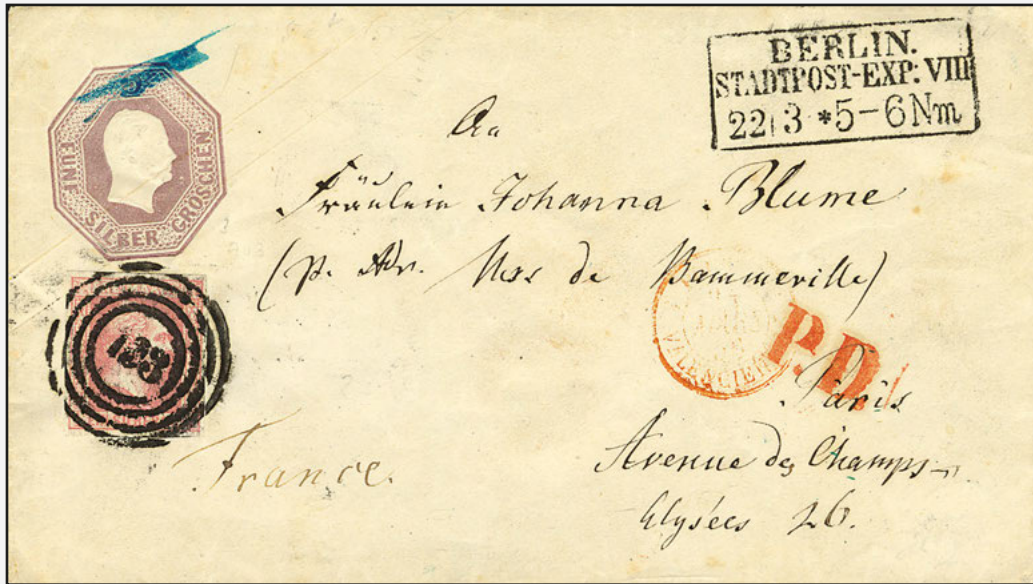 BERLIN.
STADTPOST-EXP: VIII
22|3 *5-6 Nm
FÜNF SILBER GROSCHEN
An
Fräulein Johanna Blume
(p. Adr. de Bammeville)
138
VALENCIEN
P.D.
Paris
Avenue des Champs-
Elysées 26.
France.